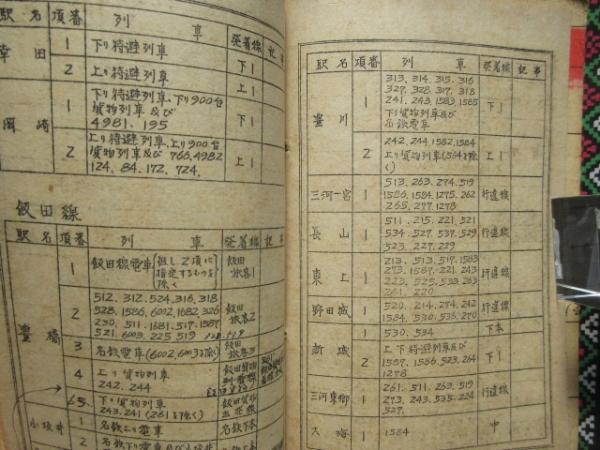 駅名 項番 列車 発着線 記事
幸田 1 下り待避列車 下1
2 上り待避列車 上1
岡崎 1 下り待避列車、下り900台
貨物列車及び
4981, 195 下1
2 上り待避列車、上り900台
貨物列車及び 766, 4982
124, 84, 172, 724, 上1
飯田線
駅名 項番 列車 発着線 記事
豊橋 1 飯田線電車 但し2項に
指定するものを
除く 飯田
旅客1
2 512, 312, 524, 316, 318
528, 1586, 6002, 1682, 326
230, 511, 1681, 519, 1587
521, 6003, 225, 519 飯田
旅客2
3 名鉄電車(6002, 6003を除く) 飯田
旅客3
4 上り貨物列車
242, 244 飯田
貨物
5 下り貨物列車
243, 241 (261を除く) 飯田
小坂井 1 名鉄上り電車 名鉄下本
2 名鉄下り電車及び
駅名 項番 列車 発着線 記事
豊川 1 313, 314, 315, 316
327, 328, 317, 318
241, 243, 1583, 1585
下り貨物列車及び
名鉄電車 下1
2 242, 244, 1582, 1584
上り貨物列車(564を除
く) 上1
三河一宮 1 513, 263, 274, 519
1586, 1584, 1275, 262
265, 277, 1278 行違線
長山 1 511, 215, 221, 521
534, 527, 537, 529
523, 227, 229 行違線
東上 1 213, 513, 517, 1583
273, 1587, 221, 243
223, 525, 533, 263
261, 530 行違線
野田城 1 520, 214, 274, 242
1584, 530, 536, 270 行違線
1 530, 534 下本
新城 2 上下待避列車及び
1587, 1586, 523, 264
1278 下1
三河東郷 1 261, 511, 263, 519
273, 243, 535, 224
527, 行違線
大海 1 1584 中